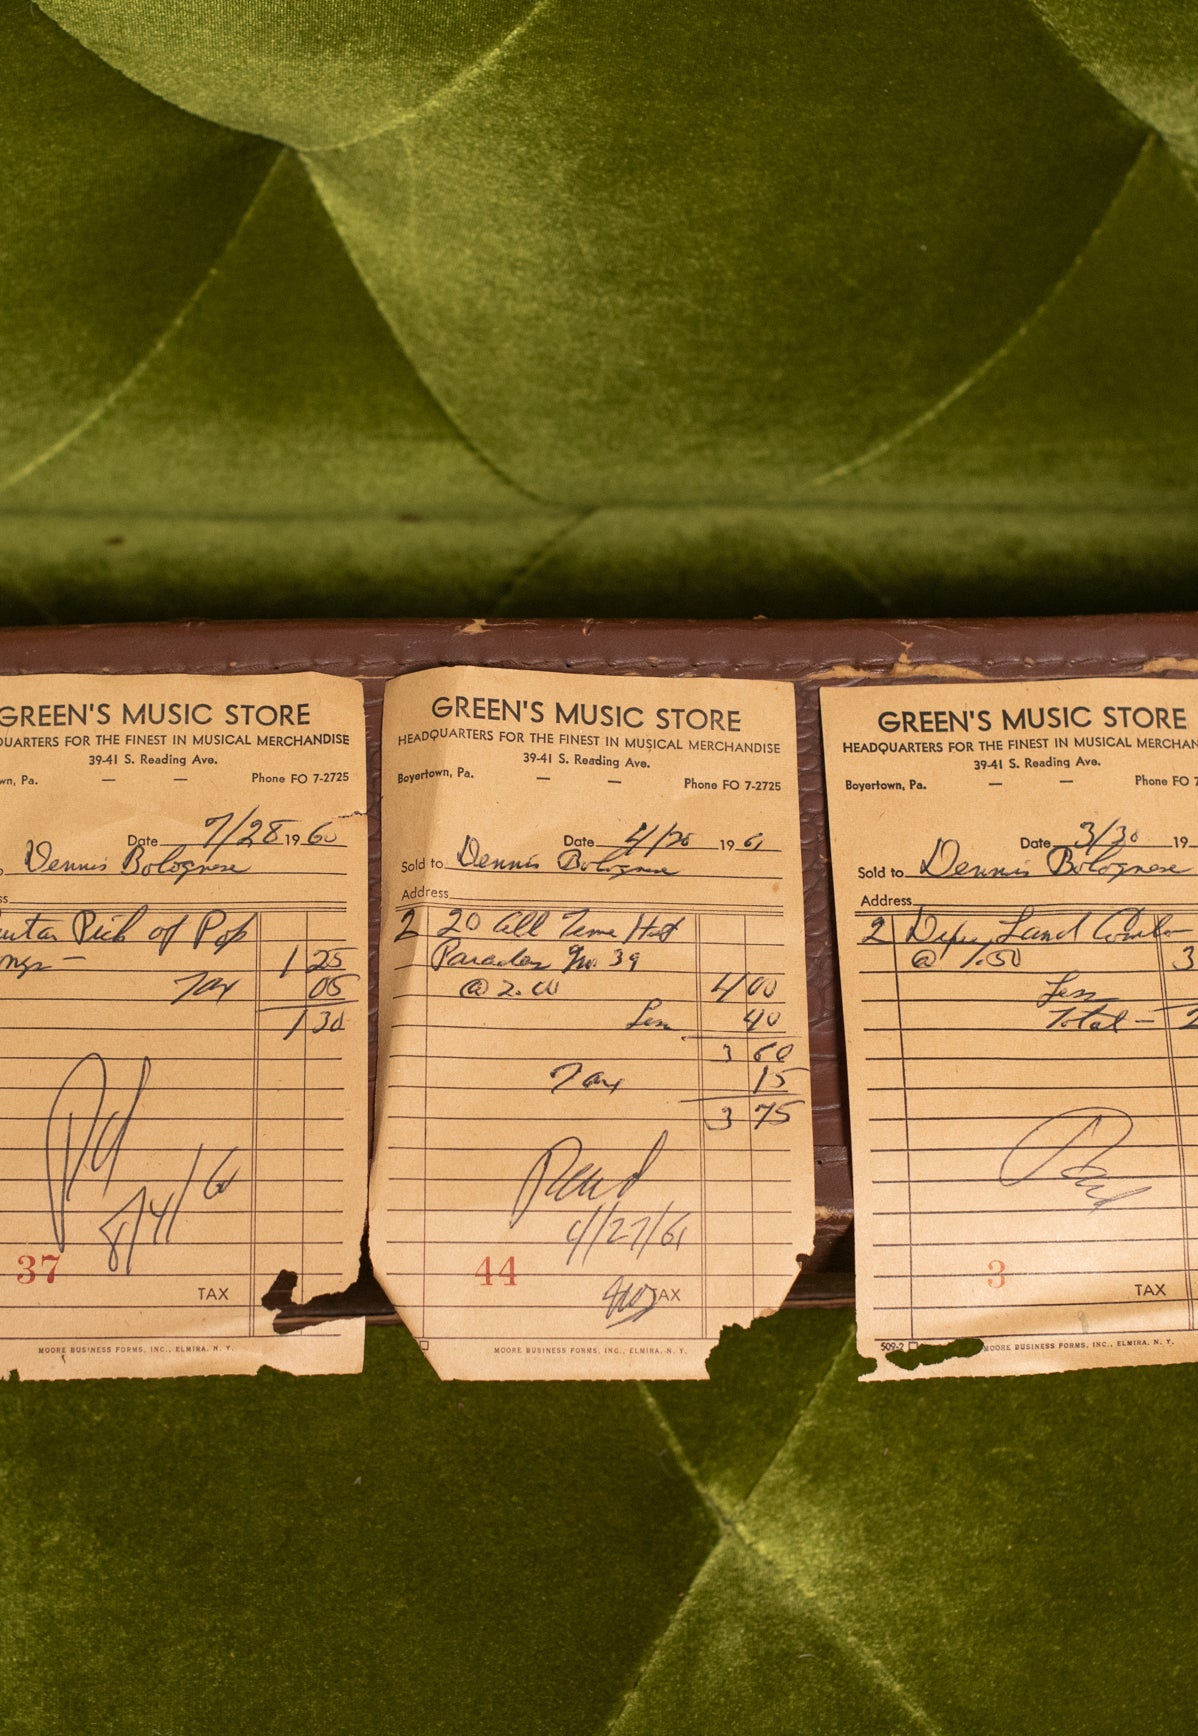 GREEN'S MUSIC STORE
QUARTERS FOR THE FINEST IN MUSICAL MERCHANDISE
39-41 S. Reading Ave.
wn, Pa. — — Phone FO 7-2725
Date 7/28 1960
Dennis Bolognese
ss
uitar Pick of Pop
ngs — 1 25
Tax 05
1 30
Pd
8/4/60
37
TAX
MOORE BUSINESS FORMS, INC., ELMIRA, N. Y.
GREEN'S MUSIC STORE
HEADQUARTERS FOR THE FINEST IN MUSICAL MERCHANDISE
39-41 S. Reading Ave.
Boyertown, Pa. — — Phone FO 7-2725
Date 4/20 1961
Sold to Dennis Bolognese
Address
2 20 All Time Hit
Parades No. 39
@ 2.00 4 00
Less 40
3 60
Tax 15
3 75
Paid
4/27/61
44
TAX
MOORE BUSINESS FORMS, INC., ELMIRA, N. Y.
GREEN'S MUSIC STORE
HEADQUARTERS FOR THE FINEST IN MUSICAL MERCHAN
39-41 S. Reading Ave.
Boyertown, Pa. — — Phone FO 7
Date 3/30 19
Sold to Dennis Bolognese
Address
2 Land Combo
@ 1.50 3
Less
Total — 2
Paid
3
TAX
509-2 MOORE BUSINESS FORMS, INC., ELMIRA, N. Y.